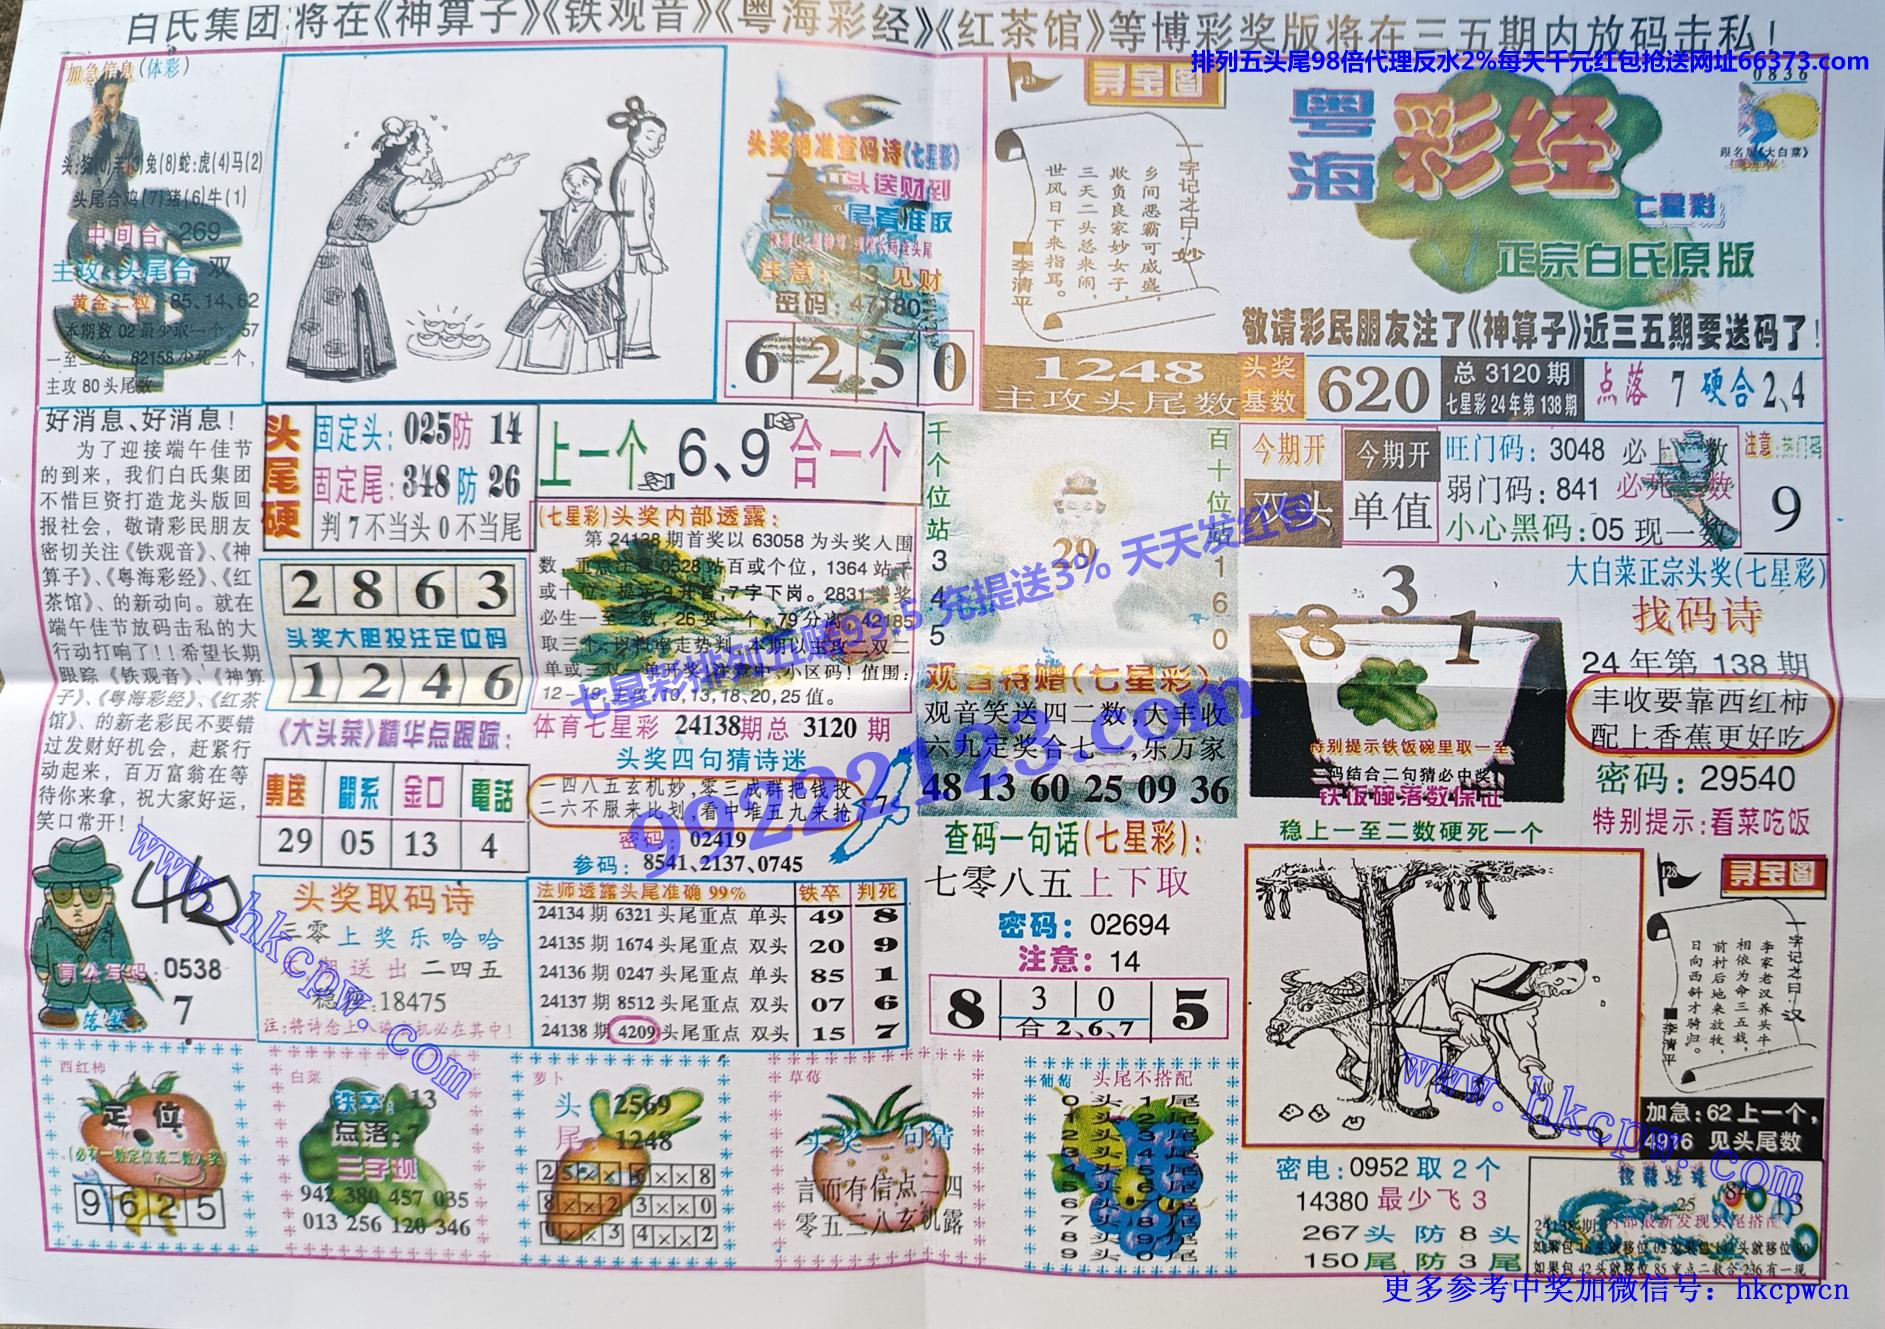 白氏集团:将在《神算子》《铁观音》《粤海彩经》《红茶馆》等博彩奖版将在三五期内放码击私！
排列五头尾98倍代理反水2%每天千元红包抢送网址66373.com
加急信息(体彩)
兔(8)蛇:虎(4)马(2)
头尾合鸡(7)猪(6)牛(1)
中间合:269
主攻:头尾合 双
黄金二粒:85、14、62
主攻 80 头尾数
头奖绝准查码诗(七星彩)
密码:47180
6 2.5 0
128
寻宝图
一字记之曰:妙
乡间恶霸可威盛，
欺负良家妙女子，
三天二头总来闹，
世风日下来指骂。
■李清平
1248
主攻头尾数
粤海彩经
七星彩
正宗白氏原版
0836
跟名版《大白菜》
敬请彩民朋友注了《神算子》近三五期要送码了！
头奖基数
620
总 3120 期
七星彩 24 年第 138 期
点落 7 硬合 2、4
好消息、好消息！
为了迎接端午佳节
的到来，我们白氏集团
不惜巨资打造龙头版回
报社会，敬请彩民朋友
密切关注《铁观音》、《神
算子》、《粤海彩经》、《红
茶馆》、的新动向。就在
端午佳节放码击私的大
行动打响了！！希望长期
跟踪《铁观音》、《神算
子》、《粤海彩经》、《红茶
馆》、的新老彩民不要错
过发财好机会，赶紧行
动起来，百万富翁在等
待你来拿，祝大家好运，
笑口常开！！
头尾硬
固定头:025防 14
固定尾:348 防 26
判 7 不当头 0 不当尾
上一个 6、9 合一个
2 8 6 3
头奖大胆投注定位码
1 2 4 6
(七星彩)头奖内部透露:
第 24138 期首奖以 63058 为头奖人围
12－19 主攻 10,13,18,20,25 值。
体育七星彩 24138期总 3120 期
头奖四句猜诗迷
一四八五玄机妙，零三成群把钱投
二六不服来比划，看中堆五九来抢
密码 02419
参码:8541,2137,0745
7
千个位站345
百十位站160
29
观音特赠(七星彩):
观音笑送四二数，大丰收
六九定奖合七一，乐万家
48 13 60 25 09 36
今期开
双头
今期开
单值
旺门码:3048 必上一数
弱门码:841 必死二数
小心黑码:05 现一数
注意:热门码
9
8 3 1
特别提示铁饭碗里取一至
二码结合二句猜必中奖!
铁饭碗落数保证
稳上一至二数硬死一个
大白菜正宗头奖(七星彩)
找码诗
24 年第 138 期
丰收要靠西红柿
配上香蕉更好吃
密码:29540
特别提示:看菜吃饭
《大头菜》精华点跟踪:
專送 關系 金口 電話
29 05 13 4
头奖取码诗
三零上奖乐哈哈
送出二四五
18475
0538
7
法师透露头尾准确 99% 铁卒 判死
24134 期 6321 头尾重点 单头 49 8
24135 期 1674 头尾重点 双头 20 9
24136 期 0247 头尾重点 单头 85 1
24137 期 8512 头尾重点 双头 07 6
24138 期 4209 头尾重点 双头 15 7
查码一句话(七星彩):
七零八五上下取
密码:02694
注意:14
8 3 0 5
合 2、6、7
128
寻宝图
一字记之曰:汉
李家老汉养头牛，
相依为命三五栽，
前村后地来放牧，
日向西斜才骑归。
■李清平
加急:62 上一个，
4916 见头尾数
西红柿
定位
(必有一数定位或二数入奖)
9 6 2 5
白菜
铁卒:13
点落:7
三字现
942 380 457 035
013 256 120 346
萝卜
头 2569
尾 1248
2 5 × × 6 × × 8
8 × × 2 3 × × 0
0 × × 3 4 × × 2
草莓
头奖二句猜
言而有信点二四
零五三八玄机露
葡萄 头尾不搭配
0 头 1 尾
1 头 2 尾
2 头 3 尾
3 头 4 尾
4 头 5 尾
5 头 6 尾
6 头 7 尾
7 头 8 尾
8 头 9 尾
9 头 0 尾
密电:0952 取 2 个
14380 最少飞 3
267 头 防 8 头
150 尾 防 3 尾
24138期:内部最新发现头尾搭配
如果包 42 头就移位 85 重点二数合 236 有一现
七星彩排列五赔99.5 充提送3% 天天发红包
99222123.com
www.hkcpw.com
www.hkcpw.com
更多参考中奖加微信号：hkcpwcn